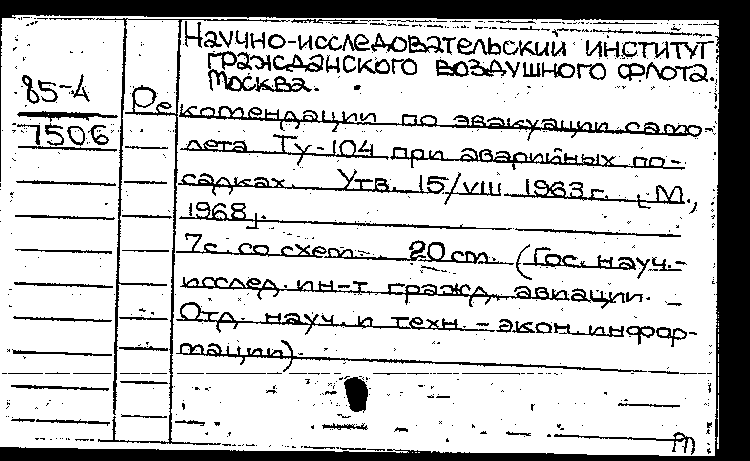 Научно-исследовательский институт
гражданского воздушного флота.
Москва.
85-4
7506
Рекомендации по эвакуации само-
лета Ту-104 при аварийных по-
садках. Утв. 15/VIII 1963 г. [М.,
1968].
7 с. со схем. 20 см. (Гос. науч.-
исслед. ин-т гражд. авиации.
Отд. науч. и техн.-экон. инфор-
мации)
РП